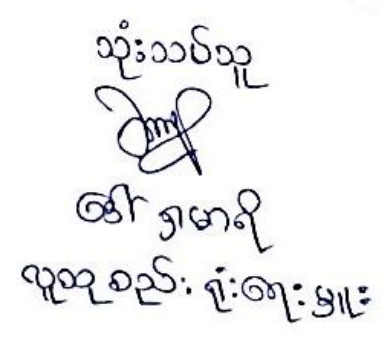 သုံးသပ်သူ
ဒေါ်ရှာမာရီ
လူထုစည်းရုံးရေးမှူး